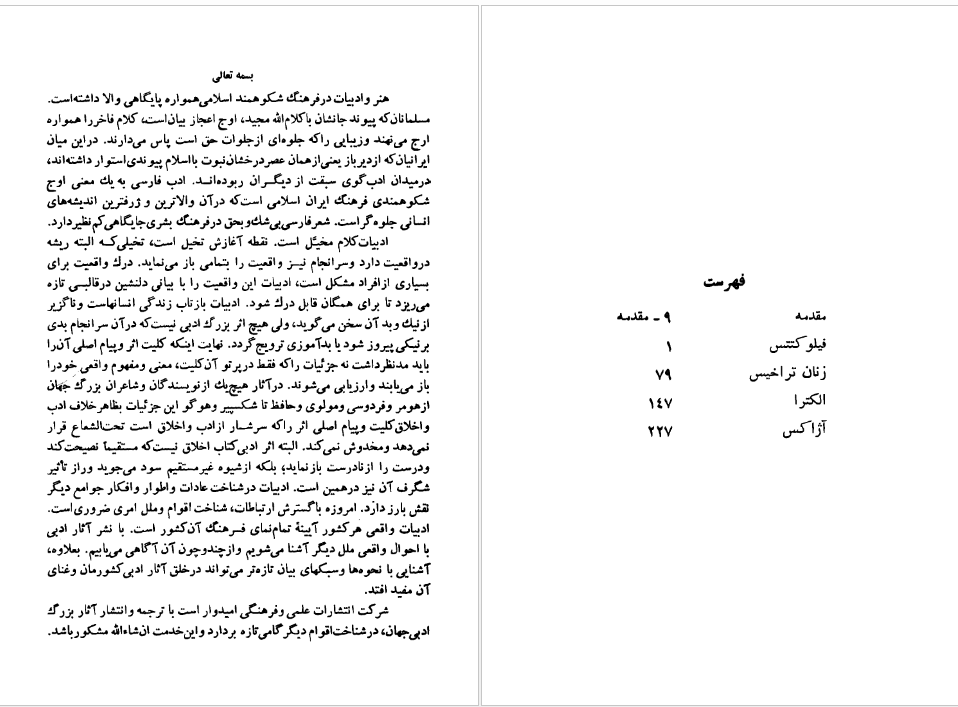 فهرست
مقدمه ۹ - مقدمه
فیلوکتتس ۱
زنان تراخیس ۷۹
الکترا ۱٤۷
آژاکس ۲۲۷
بسمه تعالی
هنر و ادبیات در فرهنگ شکوهمند اسلامی همواره پایگاهی والا داشته است.
مسلمانان که پیوند جانشان با کلام‌الله مجید، اوج اعجاز بیان است، کلام فاخر را همواره
ارج می‌نهند و زیبایی را که جلوه‌ای از جلوات حق است پاس می‌دارند. در این میان
ایرانیان که از دیرباز یعنی از همان عصر درخشان نبوت با اسلام پیوندی استوار داشته‌اند،
در میدان ادب گوی سبقت از دیگران ربوده‌اند. ادب فارسی به یك معنی اوج
شکوهمندی فرهنگ ایران اسلامی است که در آن والاترین و ژرفترین اندیشه‌های
انسانی جلوه گر است. شعر فارسی بی‌شك و بحق در فرهنگ بشری جایگاهی کم نظیر دارد.
ادبیات کلام مخیّل است. نقطه آغازش تخیل است، تخیلی که البته ریشه
در واقعیت دارد و سرانجام نیز واقعیت را بتمامی باز می‌نماید. درك واقعیت برای
بسیاری از افراد مشکل است، ادبیات این واقعیت را با بیانی دلنشین در قالبی تازه
می‌ریزد تا برای همگان قابل درك شود. ادبیات بازتاب زندگی انسانهاست و ناگزیر
از نیك و بد آن سخن می‌گوید، ولی هیچ اثر بزرگ ادبی نیست که در آن سرانجام بدی
بر نیکی پیروز شود یا بدآموزی ترویج گردد. نهایت اینکه کلیت اثر و پیام اصلی آن را
باید مد نظر داشت نه جزئیات را که فقط در پرتو آن کلیت، معنی و مفهوم واقعی خود را
باز می‌یابند و ارزیابی می‌شوند. در آثار هیچ‌یك از نویسندگان و شاعران بزرگ جهان
از هومر و فردوسی و مولوی و حافظ تا شکسپیر و هوگو این جزئیات بظاهر خلاف ادب
و اخلاق کلیت و پیام اصلی اثر را که سرشار از ادب و اخلاق است تحت‌الشعاع قرار
نمی‌دهد و مخدوش نمی‌کند. البته اثر ادبی کتاب اخلاق نیست که مستقیماً نصیحت کند
و درست را از نادرست باز نماید؛ بلکه از شیوه غیرمستقیم سود می‌جوید و راز تأثیر
شگرف آن نیز در همین است. ادبیات در شناخت عادات و اطوار و افکار جوامع دیگر
نقش بارز دارد. امروزه با گسترش ارتباطات، شناخت اقوام و ملل امری ضروری است.
ادبیات واقعی هر کشور آیینهٔ تمام‌نمای فرهنگ آن کشور است. با نشر آثار ادبی
با احوال واقعی ملل دیگر آشنا می‌شویم و از چند و چون آن آگاهی می‌یابیم. بعلاوه،
آشنایی با نحوه‌ها و سبکهای بیان تازه‌تر می‌تواند در خلق آثار ادبی کشورمان و غنای
آن مفید افتد.
شرکت انتشارات علمی و فرهنگی امیدوار است با ترجمه و انتشار آثار بزرگ
ادبی جهان، در شناخت اقوام دیگر گامی تازه بردارد و این خدمت ان‌شاءالله مشکور باشد.